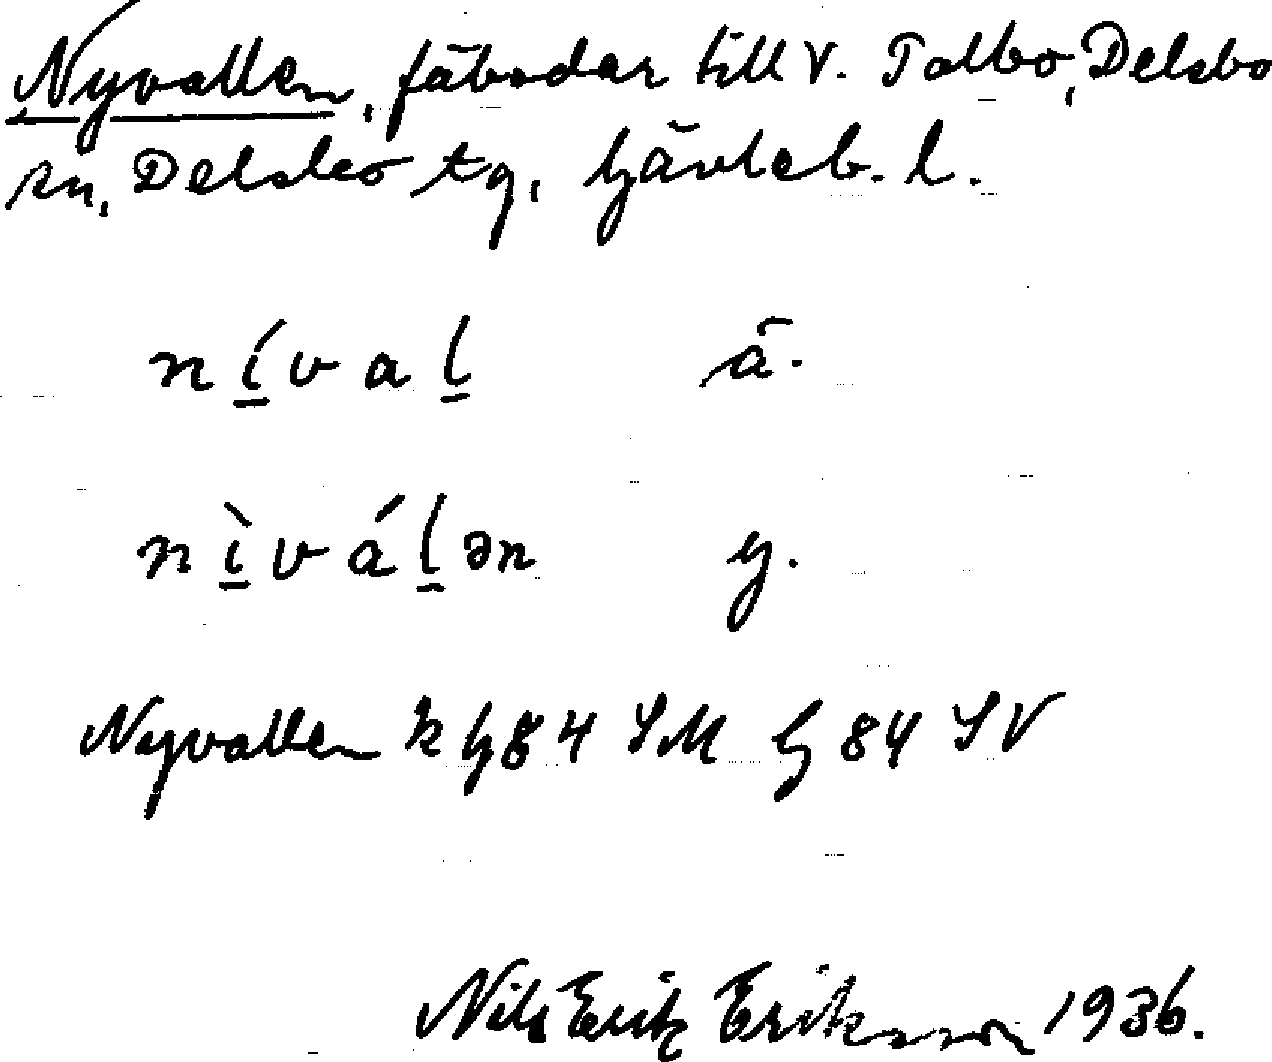 Nyvallen, fäbodar till V. Tolbo, Delsbo
sn, Delsbo tg, Gävleb. l.
n í v a l ä.
n ì v á l ə n y.
Nyvallen k G 84 SM G 84 SV
Nils Erik Eriksson 1936.